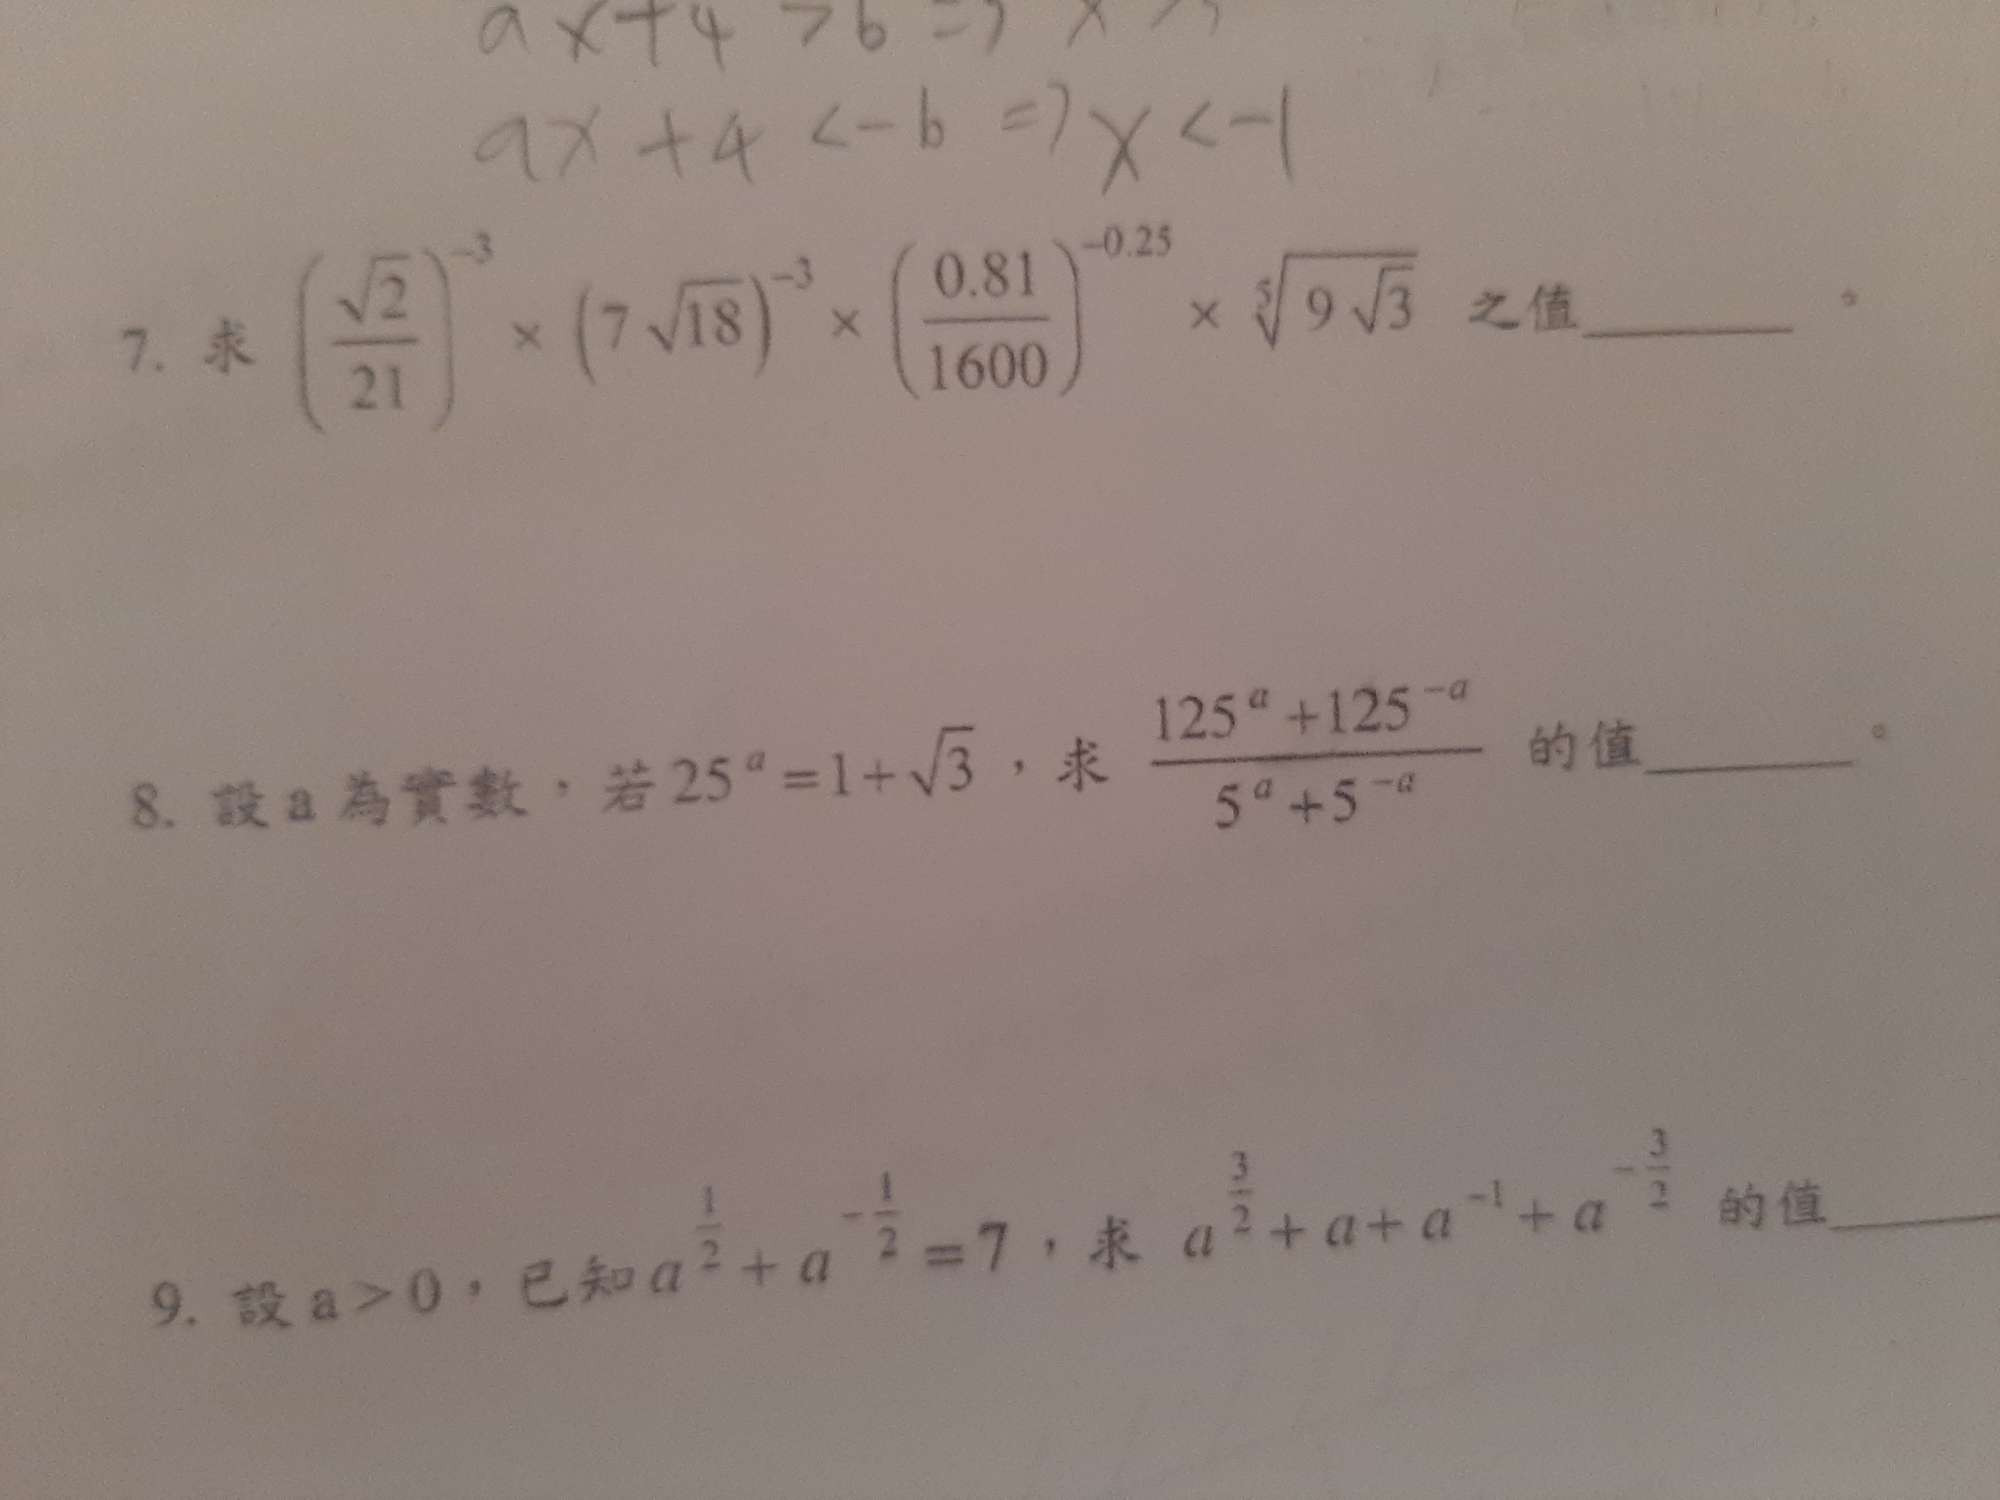 ax+4 >b => x >
ax+4 <-b => x <-1
7. 求 (√2/21)^{-3} × (7√18)^{-3} × (0.81/1600)^{-0.25} × ⁵√(9√3) 之值______。
8. 設 a 為實數，若 25^a = 1+√3，求 (125^a+125^{-a})/(5^a+5^{-a}) 的值______。
9. 設 a > 0，已知 a^{1/2} + a^{-1/2} = 7，求 a^{3/2} + a + a^{-1} + a^{-3/2} 的值______